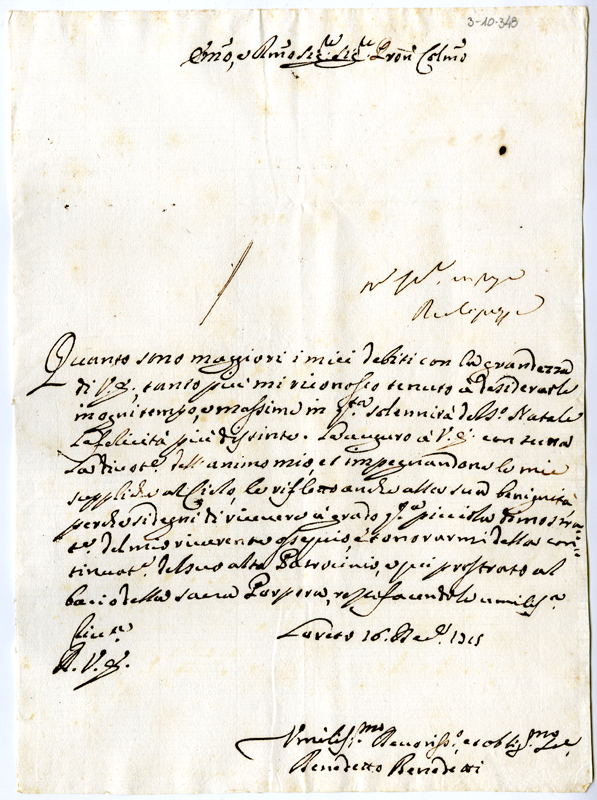 3-10-348
Emo, e Rmo Sig.re Sig.re Pron Colmo
Quanto sono maggiori i miei debiti con la grandezza
di V. E., tanto più mi riconosco tenuto à desiderarle
in ogni tempo, e massime in q.ta solennità del S.o Natale
le felicità più distinte. Le auguro à V. E. con tutta
la divot.e dell'animo mio, et impegnandone le mie
suppliche al Cielo, le rifletto anche alla sua benignità
perche si degni di ricevere à grado q.ta picciola dimostra=
t.e del mio riverente ossequio, è d'onorarmi della con=
tinuat.e del suo alto Patrocinio, e qui prostrato al
bacio della sacra Porpora, resto facendole umiliss.a
Loreto 16. Xbre 1715
A. V. E.
Umiliss.mo Devotiss.o, et obblig.mo
Benedetto Benedetti